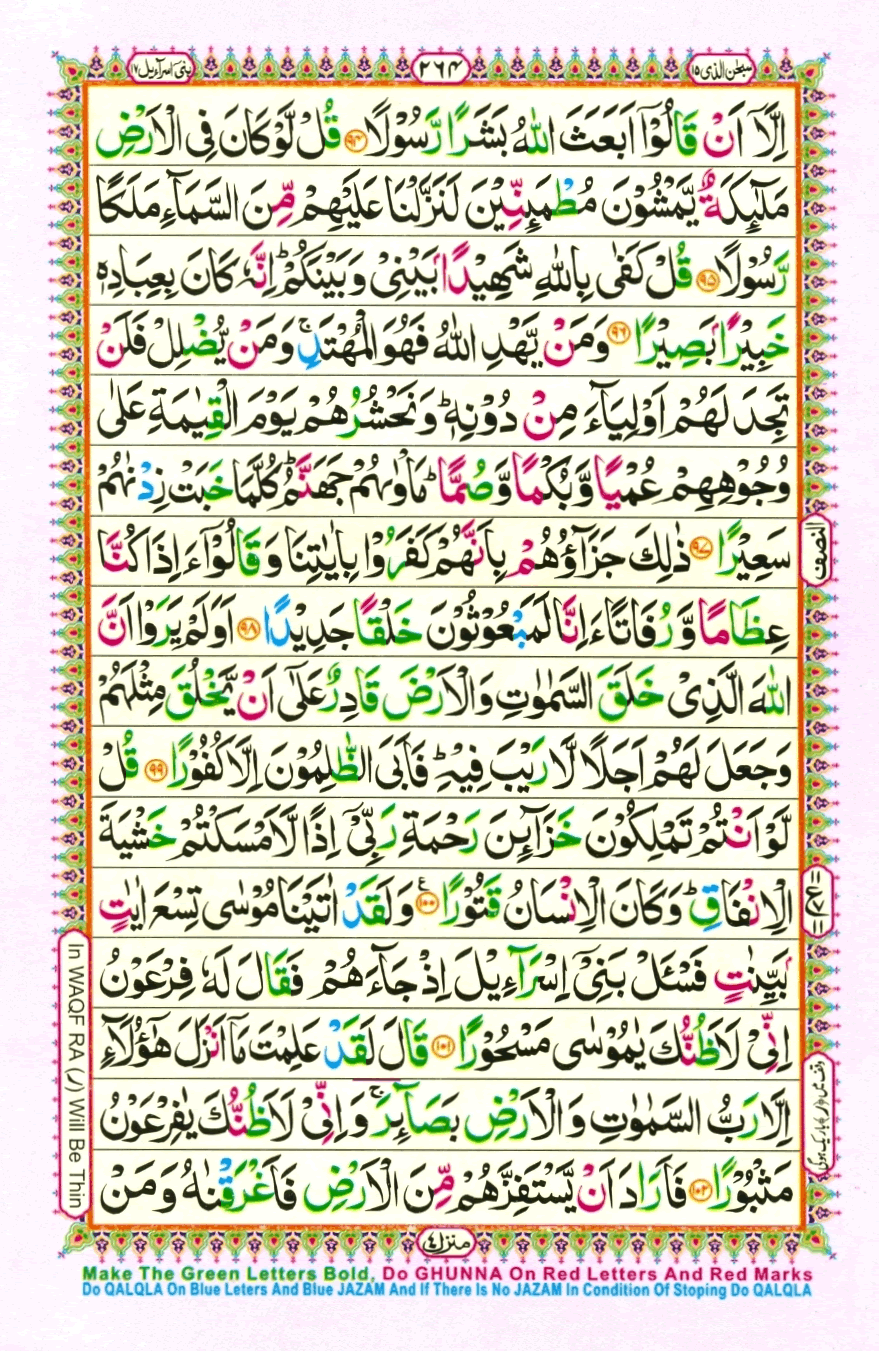 سبحٰن الذی ۱۵
۲۶۴
بنیٓ اسرآءیل ۱۷
اِلَّاۤ اَنْ قَالُوْۤا اَبَعَثَ اللّٰهُ بَشَرًا رَّسُوْلًا ﴿۹۴﴾ قُلْ لَّوْ كَانَ فِی الْاَرْضِ
مَلٰٓىِٕكَةٌ یَّمْشُوْنَ مُطْمَىِٕنِّیْنَ لَنَزَّلْنَا عَلَیْهِمْ مِّنَ السَّمَآءِ مَلَكًا
رَّسُوْلًا ﴿۹۵﴾ قُلْ كَفٰی بِاللّٰهِ شَهِیْدًۢا بَیْنِیْ وَ بَیْنَكُمْ ؕ اِنَّهٗ كَانَ بِعِبَادِهٖ
خَبِیْرًۢا بَصِیْرًا ﴿۹۶﴾ وَ مَنْ یَّهْدِ اللّٰهُ فَهُوَ الْمُهْتَدِ ۚ وَ مَنْ یُّضْلِلْ فَلَنْ
تَجِدَ لَهُمْ اَوْلِیَآءَ مِنْ دُوْنِهٖ ؕ وَ نَحْشُرُهُمْ یَوْمَ الْقِیٰمَةِ عَلٰی
وُجُوْهِهِمْ عُمْیًا وَّ بُكْمًا وَّ صُمًّا ؕ مَاْوٰىهُمْ جَهَنَّمُ ؕ كُلَّمَا خَبَتْ زِدْنٰهُمْ
سَعِیْرًا ﴿۹۷﴾ ذٰلِكَ جَزَآؤُهُمْ بِاَنَّهُمْ كَفَرُوْا بِاٰیٰتِنَا وَ قَالُوْۤا ءَاِذَا كُنَّا
عِظَامًا وَّ رُفَاتًا ءَاِنَّا لَمَبْعُوْثُوْنَ خَلْقًا جَدِیْدًا ﴿۹۸﴾ اَوَ لَمْ یَرَوْا اَنَّ
اللّٰهَ الَّذِیْ خَلَقَ السَّمٰوٰتِ وَ الْاَرْضَ قَادِرٌ عَلٰۤی اَنْ یَّخْلُقَ مِثْلَهُمْ
وَ جَعَلَ لَهُمْ اَجَلًا لَّا رَیْبَ فِیْهِ ؕ فَاَبَی الظّٰلِمُوْنَ اِلَّا كُفُوْرًا ﴿۹۹﴾ قُلْ
لَّوْ اَنْتُمْ تَمْلِكُوْنَ خَزَآىِٕنَ رَحْمَةِ رَبِّیْۤ اِذًا لَّاَمْسَكْتُمْ خَشْیَةَ
الْاِنْفَاقِ ؕ وَ كَانَ الْاِنْسَانُ قَتُوْرًا ﴿۱۰۰﴾ وَ لَقَدْ اٰتَیْنَا مُوْسٰی تِسْعَ اٰیٰتٍۭ
بَیِّنٰتٍ فَسْـَٔلْ بَنِیْۤ اِسْرَآءِیْلَ اِذْ جَآءَهُمْ فَقَالَ لَهٗ فِرْعَوْنُ
اِنِّیْ لَاَظُنُّكَ یٰمُوْسٰی مَسْحُوْرًا ﴿۱۰۱﴾ قَالَ لَقَدْ عَلِمْتَ مَاۤ اَنْزَلَ هٰۤؤُلَآءِ
اِلَّا رَبُّ السَّمٰوٰتِ وَ الْاَرْضِ بَصَآىِٕرَ ۚ وَ اِنِّیْ لَاَظُنُّكَ یٰفِرْعَوْنُ
مَثْبُوْرًا ﴿۱۰۲﴾ فَاَرَادَ اَنْ یَّسْتَفِزَّهُمْ مِّنَ الْاَرْضِ فَاَغْرَقْنٰهُ وَ مَنْ
النصف
In WAQF RA (ر) Will Be Thin
وقف میں (ر) باریک ہوگی
منزل ٤
Make The Green Letters Bold, Do GHUNNA On Red Letters And Red Marks
Do QALQLA On Blue Leters And Blue JAZAM And If There Is No JAZAM In Condition Of Stoping Do QALQLA